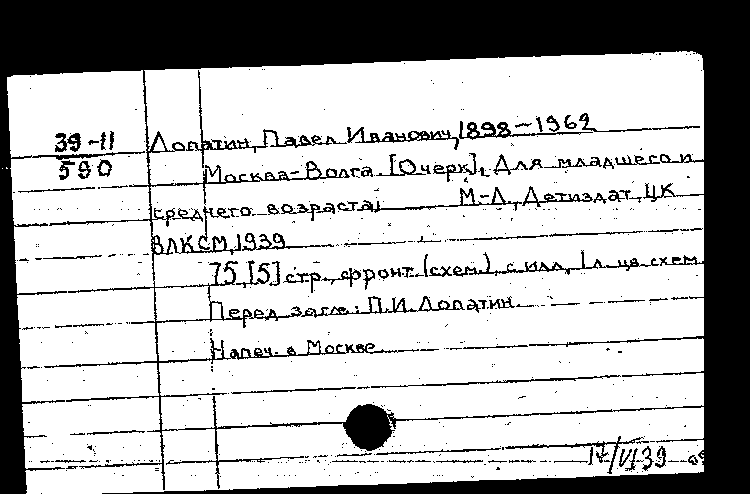 39-11
590
Лопатин, Павел Иванович, 1898-1962
Москва-Волга. [Очерк], Для младшего и
среднего возраста, М-Л., Детиздат, ЦК
ВЛКСМ, 1939
75, [5] стр., фронт. (схем.), с илл., 1 л. цв. схем.
Перед загл.: П.И. Лопатин.
Напеч. в Москве
17/VI 39